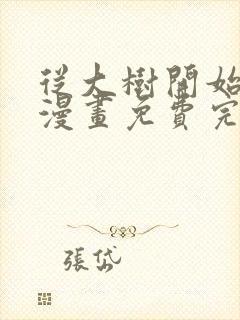 從大樹開始
漫畫免費完
張岱